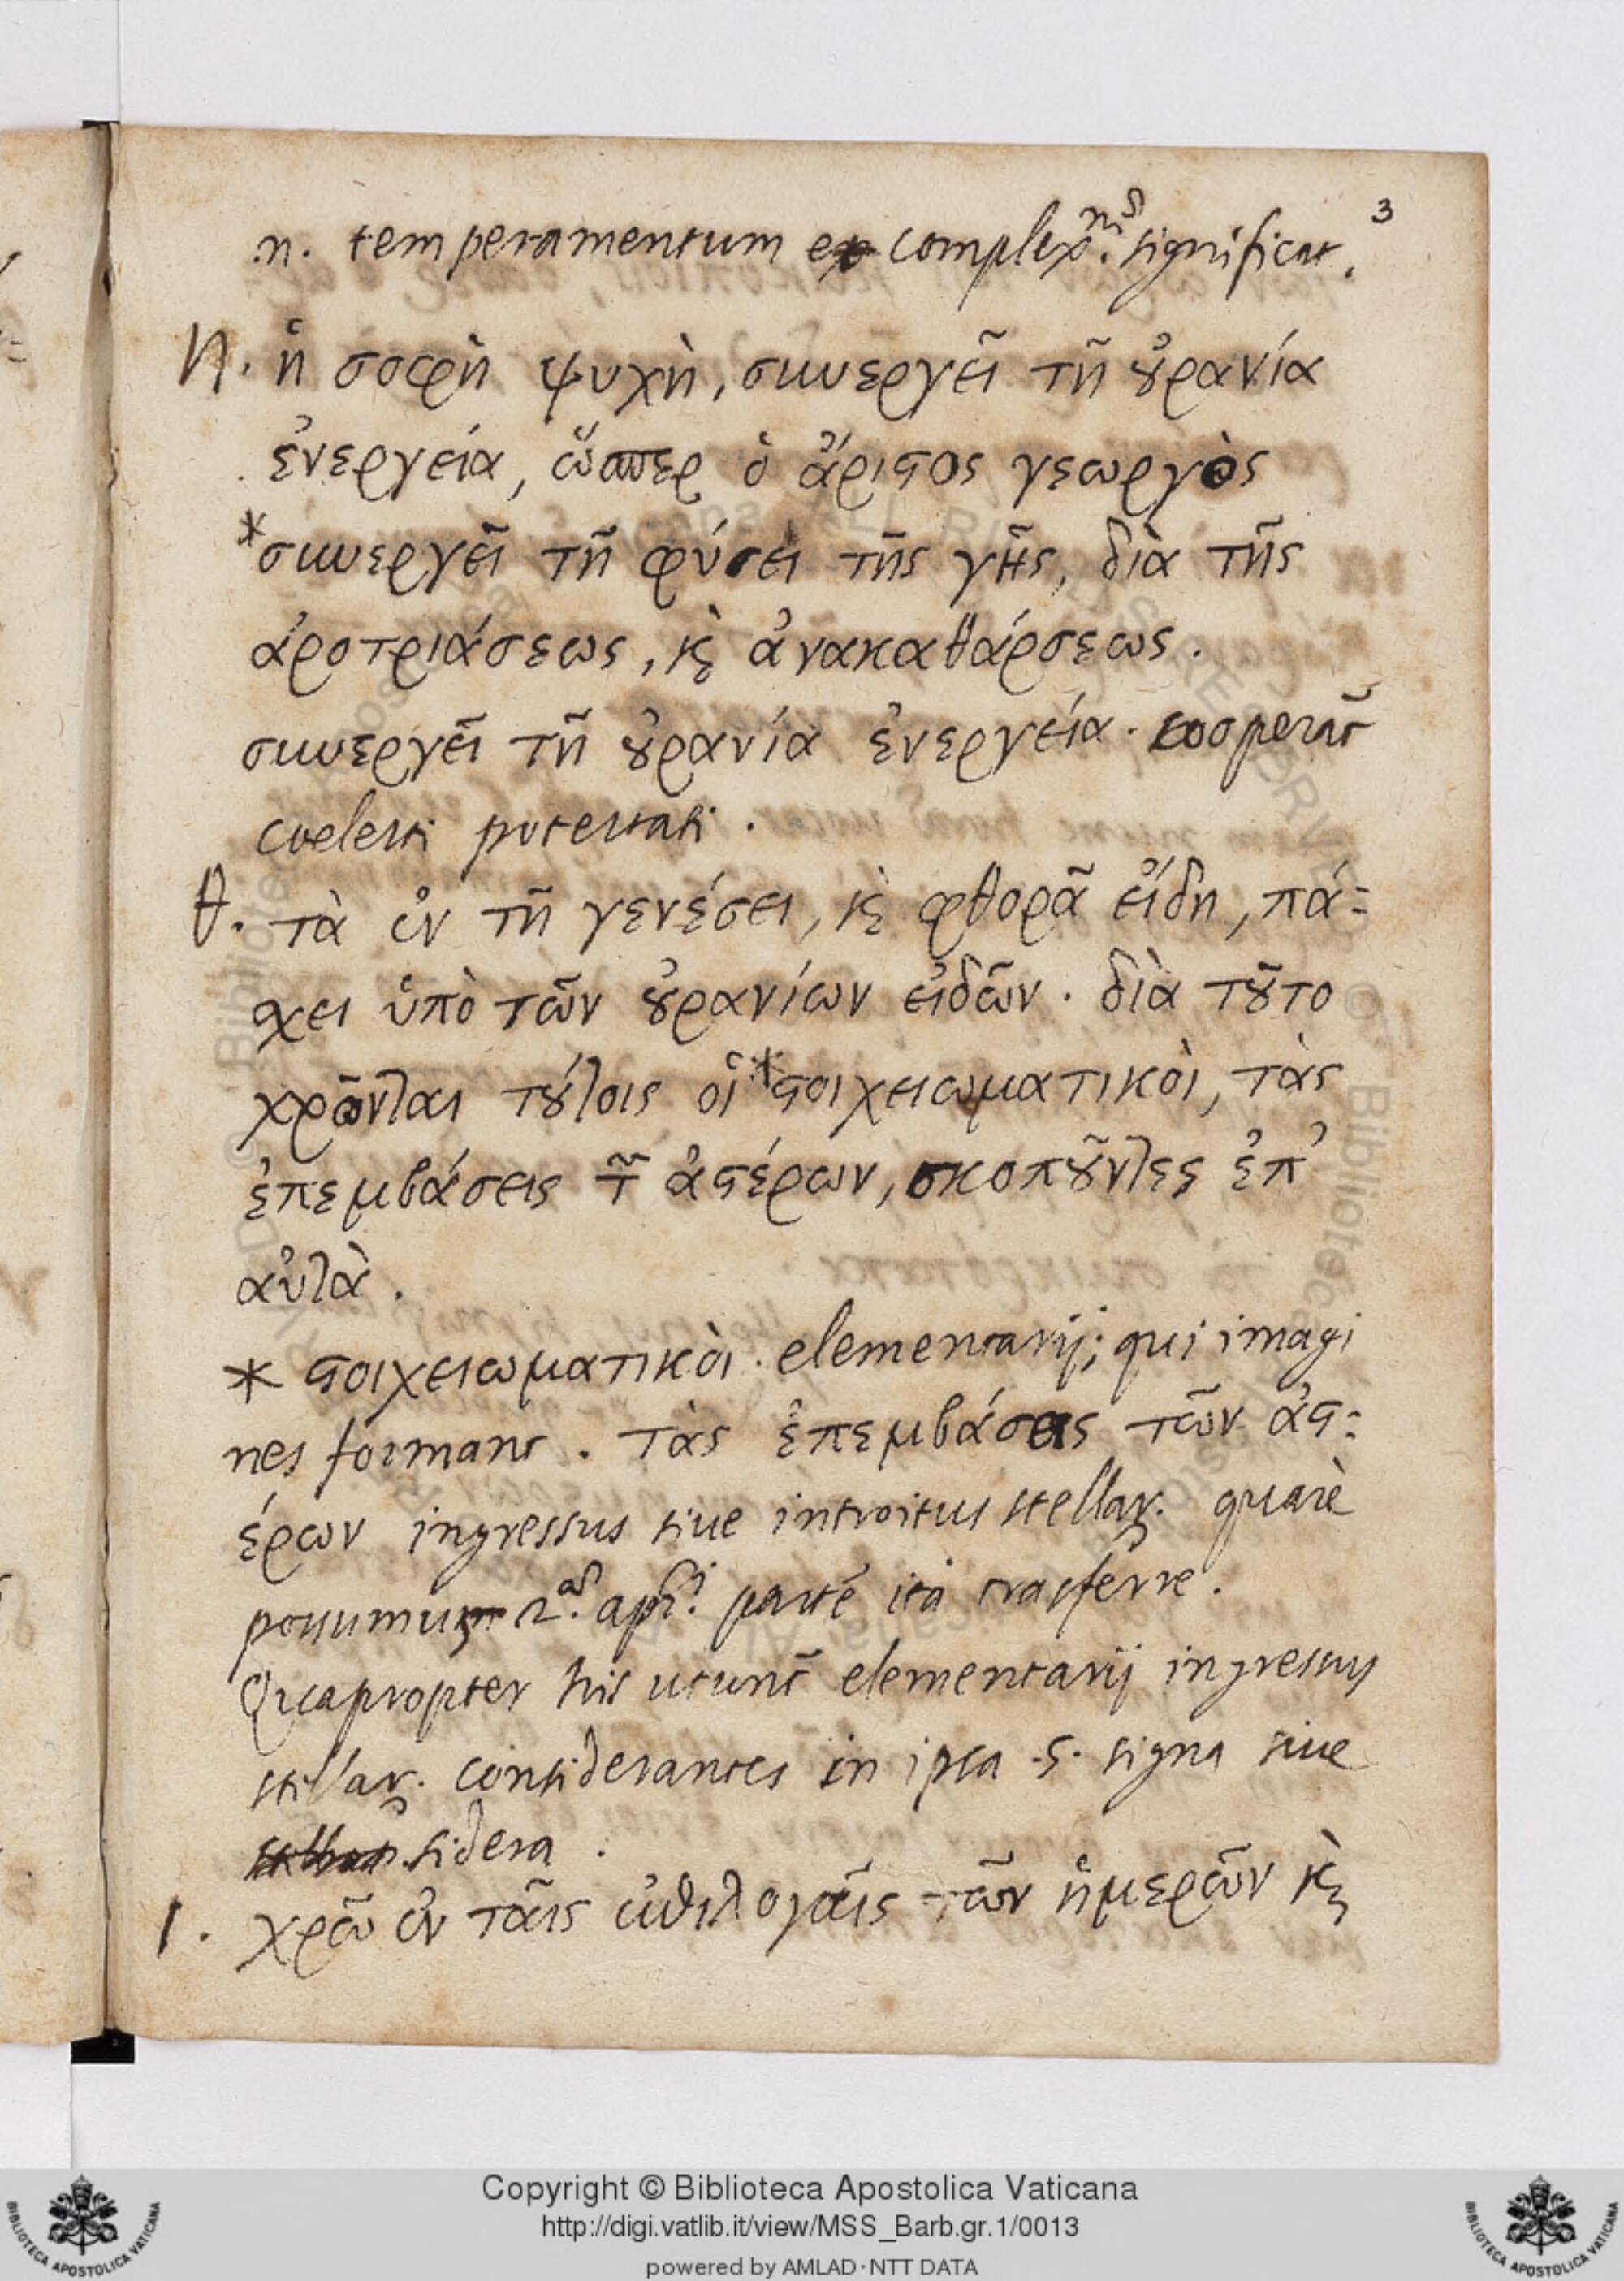 3
n. temperamentum ex complex.nis significat.
η. ἡ σοφὴ ψυχὴ, συνεργεῖ τῆ ȣ̓ρανία
ἐνεργεία, ὥσπερ ὁ ἄριϛος γεωργὸς
*συνεργεῖ τῆ φύσει τῆς γῆς, διὰ τῆς
ἀροτριάσεως, κỳ ἀνακαθάρσεως.
συνεργεῖ τῆ ȣ̓ρανία ἐνεργεία. cooperat̃
coelesti potestati.
θ. τὰ ἐν τῆ γενέσει, κỳ φθορᾶ εἴδη, πά-
χει ὑπὸ τῶν ȣ̓ρανίων εἰδῶν. διὰ τȣ̃το
χρῶνται τȣ́τοις οἱ *ϛοιχειωματικοὶ, τὰς
ἐπεμβάσεις τ̃ ἀϛέρων, σκοπȣ̃ντες ἐπ'
αὐτὰ.
* ϛοιχειωματικοὶ. elementarij; qui imagi
nes formant. τὰς ἐπεμβάσεις τῶν ἀϛ-
έρων ingressus siue introitus stellar. quarè
possumus 2.as apħ.i partē ità trasferre.
Quapropter his utunt̃ elementarij ingressus
stellar. considerantes in ipsa .s. signa siue
sidera.
ι. χρῶ ἐν ταῖς ἐκλογαῖς τῶν ἡμερῶν κỳ
Copyright © Biblioteca Apostolica Vaticana
http://digi.vatlib.it/view/MSS_Barb.gr.1/0013
powered by AMLAD·NTT DATA